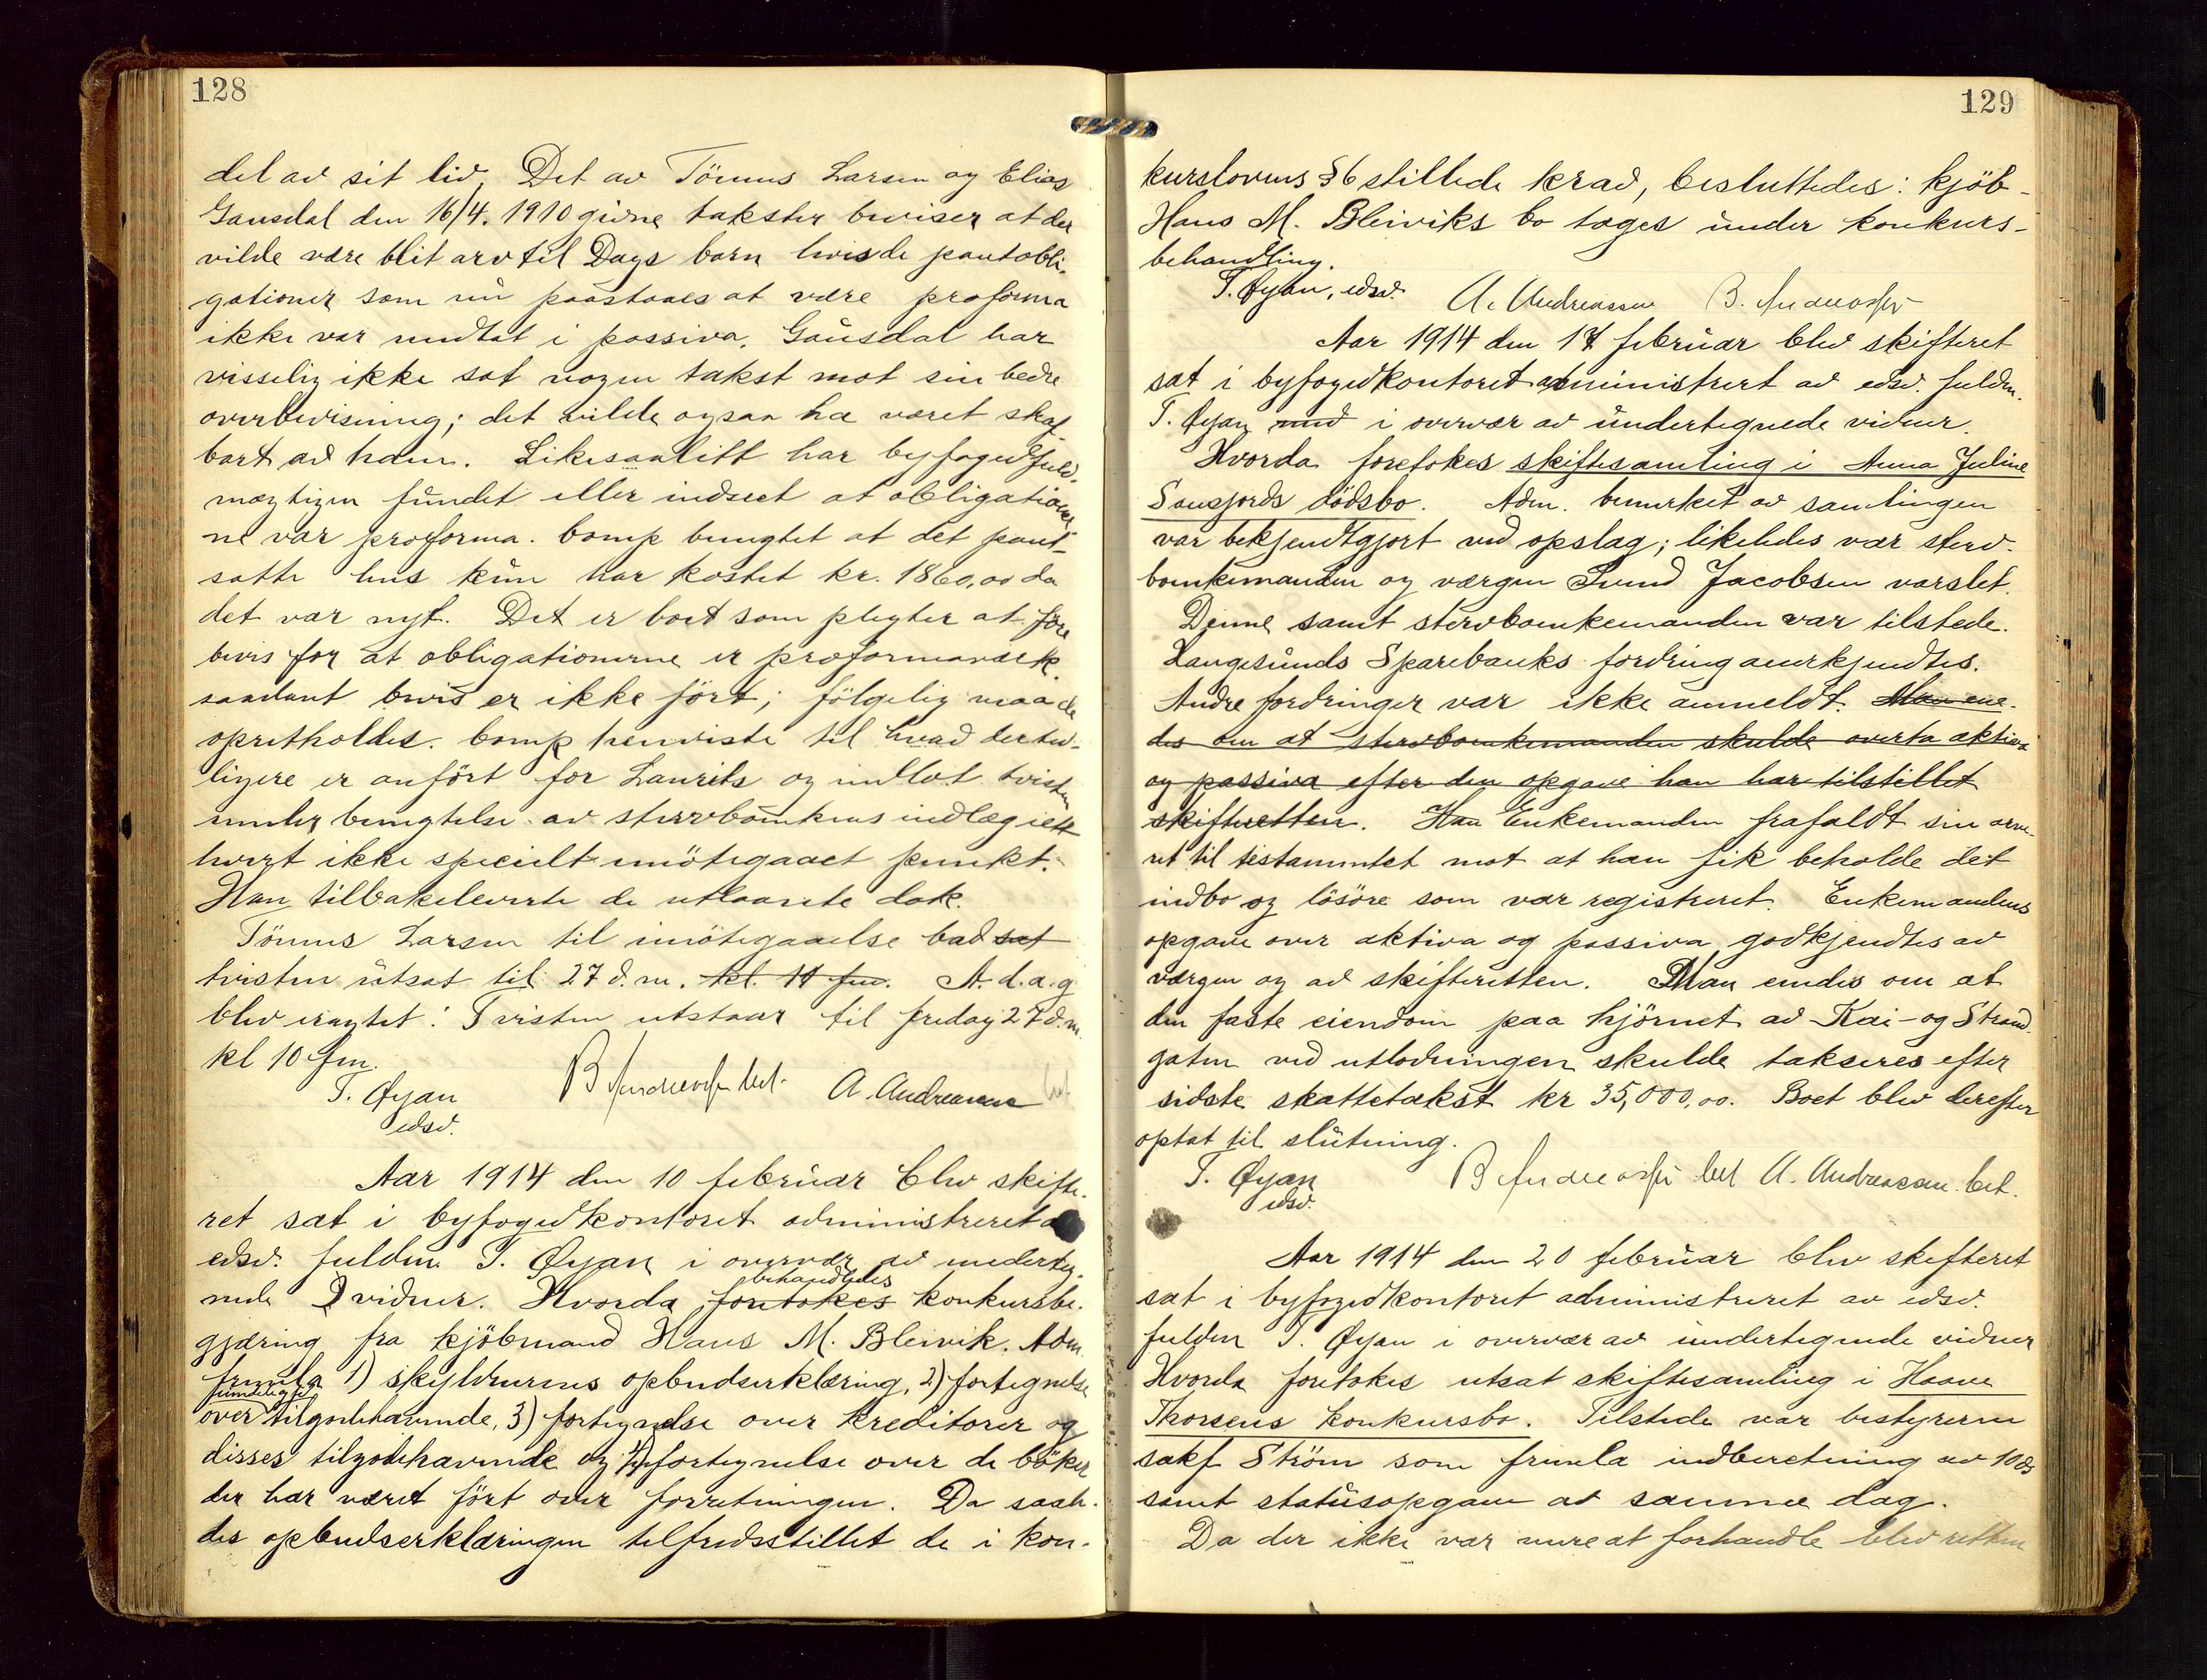 128
del av sit liv. Det av Tönnes Larsen og Elias
Gausdal den 16/4. 1910 givne takster beviser at der
vilde være blit arv til Dags barn hvis de pantobli-
gationer som nu paastaaes at være proforma
ikke var medtat i passiva. Gausdal har
visselig ikke sat nogen takst mot sin bedre
overbevisning; det vilde ogsaa ha været skaf-
bart av ham. Likesaalitt har byfogedfuld-
mægtigen fundet eller indseet at obligatione
ne var proforma. Comp benegtet at det pant-
satte hus kun har kostet kr. 1860,00 da
det var nyt. Det er boet som plegter at före
bevis for at obligationerne er proformaverk.
saadant bevis er ikke fört; fölgelig maa de
opretholdes. Comp henviste til hvad der tid-
ligere er anfört for Laurits og indlot tvisten
under benegtelse av stervboenkens indlæg i ett
hvert ikke specielt imötegaaet punkt.
Han tilbakeleverte de utlaante dok.
Tönnes Larsen til imötegaaelse bad sat
tvisten utsat til 27 d.m. kl. 11 fm. A.d.a.g
blev eragtet: Tvisten utstaar til fredag 27 d.m.
kl 10 fm.
T. Øyan B Andreassen bet. A. Andreassen
edsv.
Aar 1914 den 10 februar blev skifte-
ret sat i byfogedkontoret administreret a
edsv. fuldm. T. Øyan i overvær av underteg-
behandledes
nede 2 vidner. Hvorda foretokes konkursbe-
gjæring fra kjöbmand Hans M. Bleivik. Adm.
fremla 1) skyldnerens opbudserklæring, 2) fortegnelse
over tilgodehavende, 3) fortegnelse over kreditorer og
disses tilgodehavende og 4) fortegnelse over de böker
der har været fört over forretningen. Da saale-
des opbudserklæringen tilfredsstillet de i kon-
129
kurslovens §6 stillede krav, besluttedes: kjöb-
Hans M. Bleiviks bo tages under konkurs-
behandling.
T. Øyan, edsv. A. Andreassen B. Andreassen
Aar 1914 den 17 februar blev skifteret
sat i byfogedkontoret administrert av edsv. fuldm.
T. Øyan med i overvær av undertegnede vidner.
Hvorda foretokes skiftesamling i Anna Juline
Sansjords dödsbo. Adm. bemerket av samlingen
var bekjendtgjort ved opslag; likeledes var sterv-
boenkemanden og værgen Svend Jacobsen varslet.
Denne samt stervboenkemanden var tilstede.
Langesunds Sparebanks fordring anerkjendtes.
Andre fordringer var ikke anmeldt. Man ene-
des om at stervboenkemanden skulde overta aktiva
og passiva efter den opgave han har tilstillet
skifteretten. Han Enkemanden frafaldt sin arve-
ret til testamentet mot at han fik beholde det
indbo og lösöre som var registreret. Enkemandens
opgave over aktiva og passiva godkjendtes av
værgen og av skifteretten. Man enedes om at
den faste eiendom paa hjörnet av Kai- og Strand-
gaten ved utlodningen skulde takseres efter
sidste skattetakst kr 35,000,00. Boet blev derefter
optat til slutning.
T. Øyan B Andreassen bet A. Andreassen. bet.
edsv.
Aar 1914 den 20 februar blev skifteret
sat i byfogedkontoret administreret av edsv.
fuldm T. Øyan i overvær av undertegnede vidner
Hvorda foretokes utsat skiftesamling i Haave
Thorsens konkursbo. Tilstede var bestyreren
sakf Ström som fremla indberetning av 10 ds
samt statusopgave av samme dag.
Da der ikke var mere at forhandle blev retten